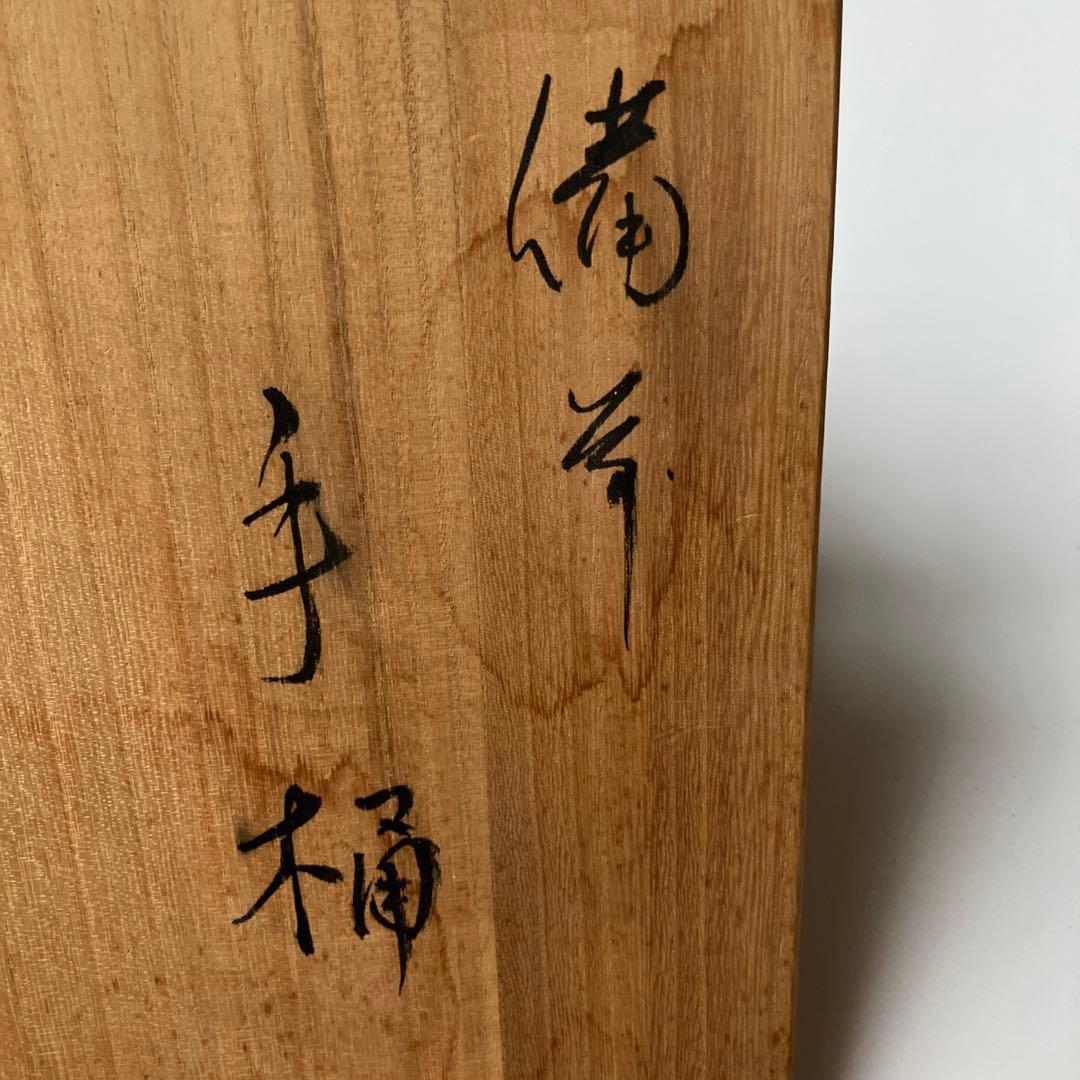 備前
手桶